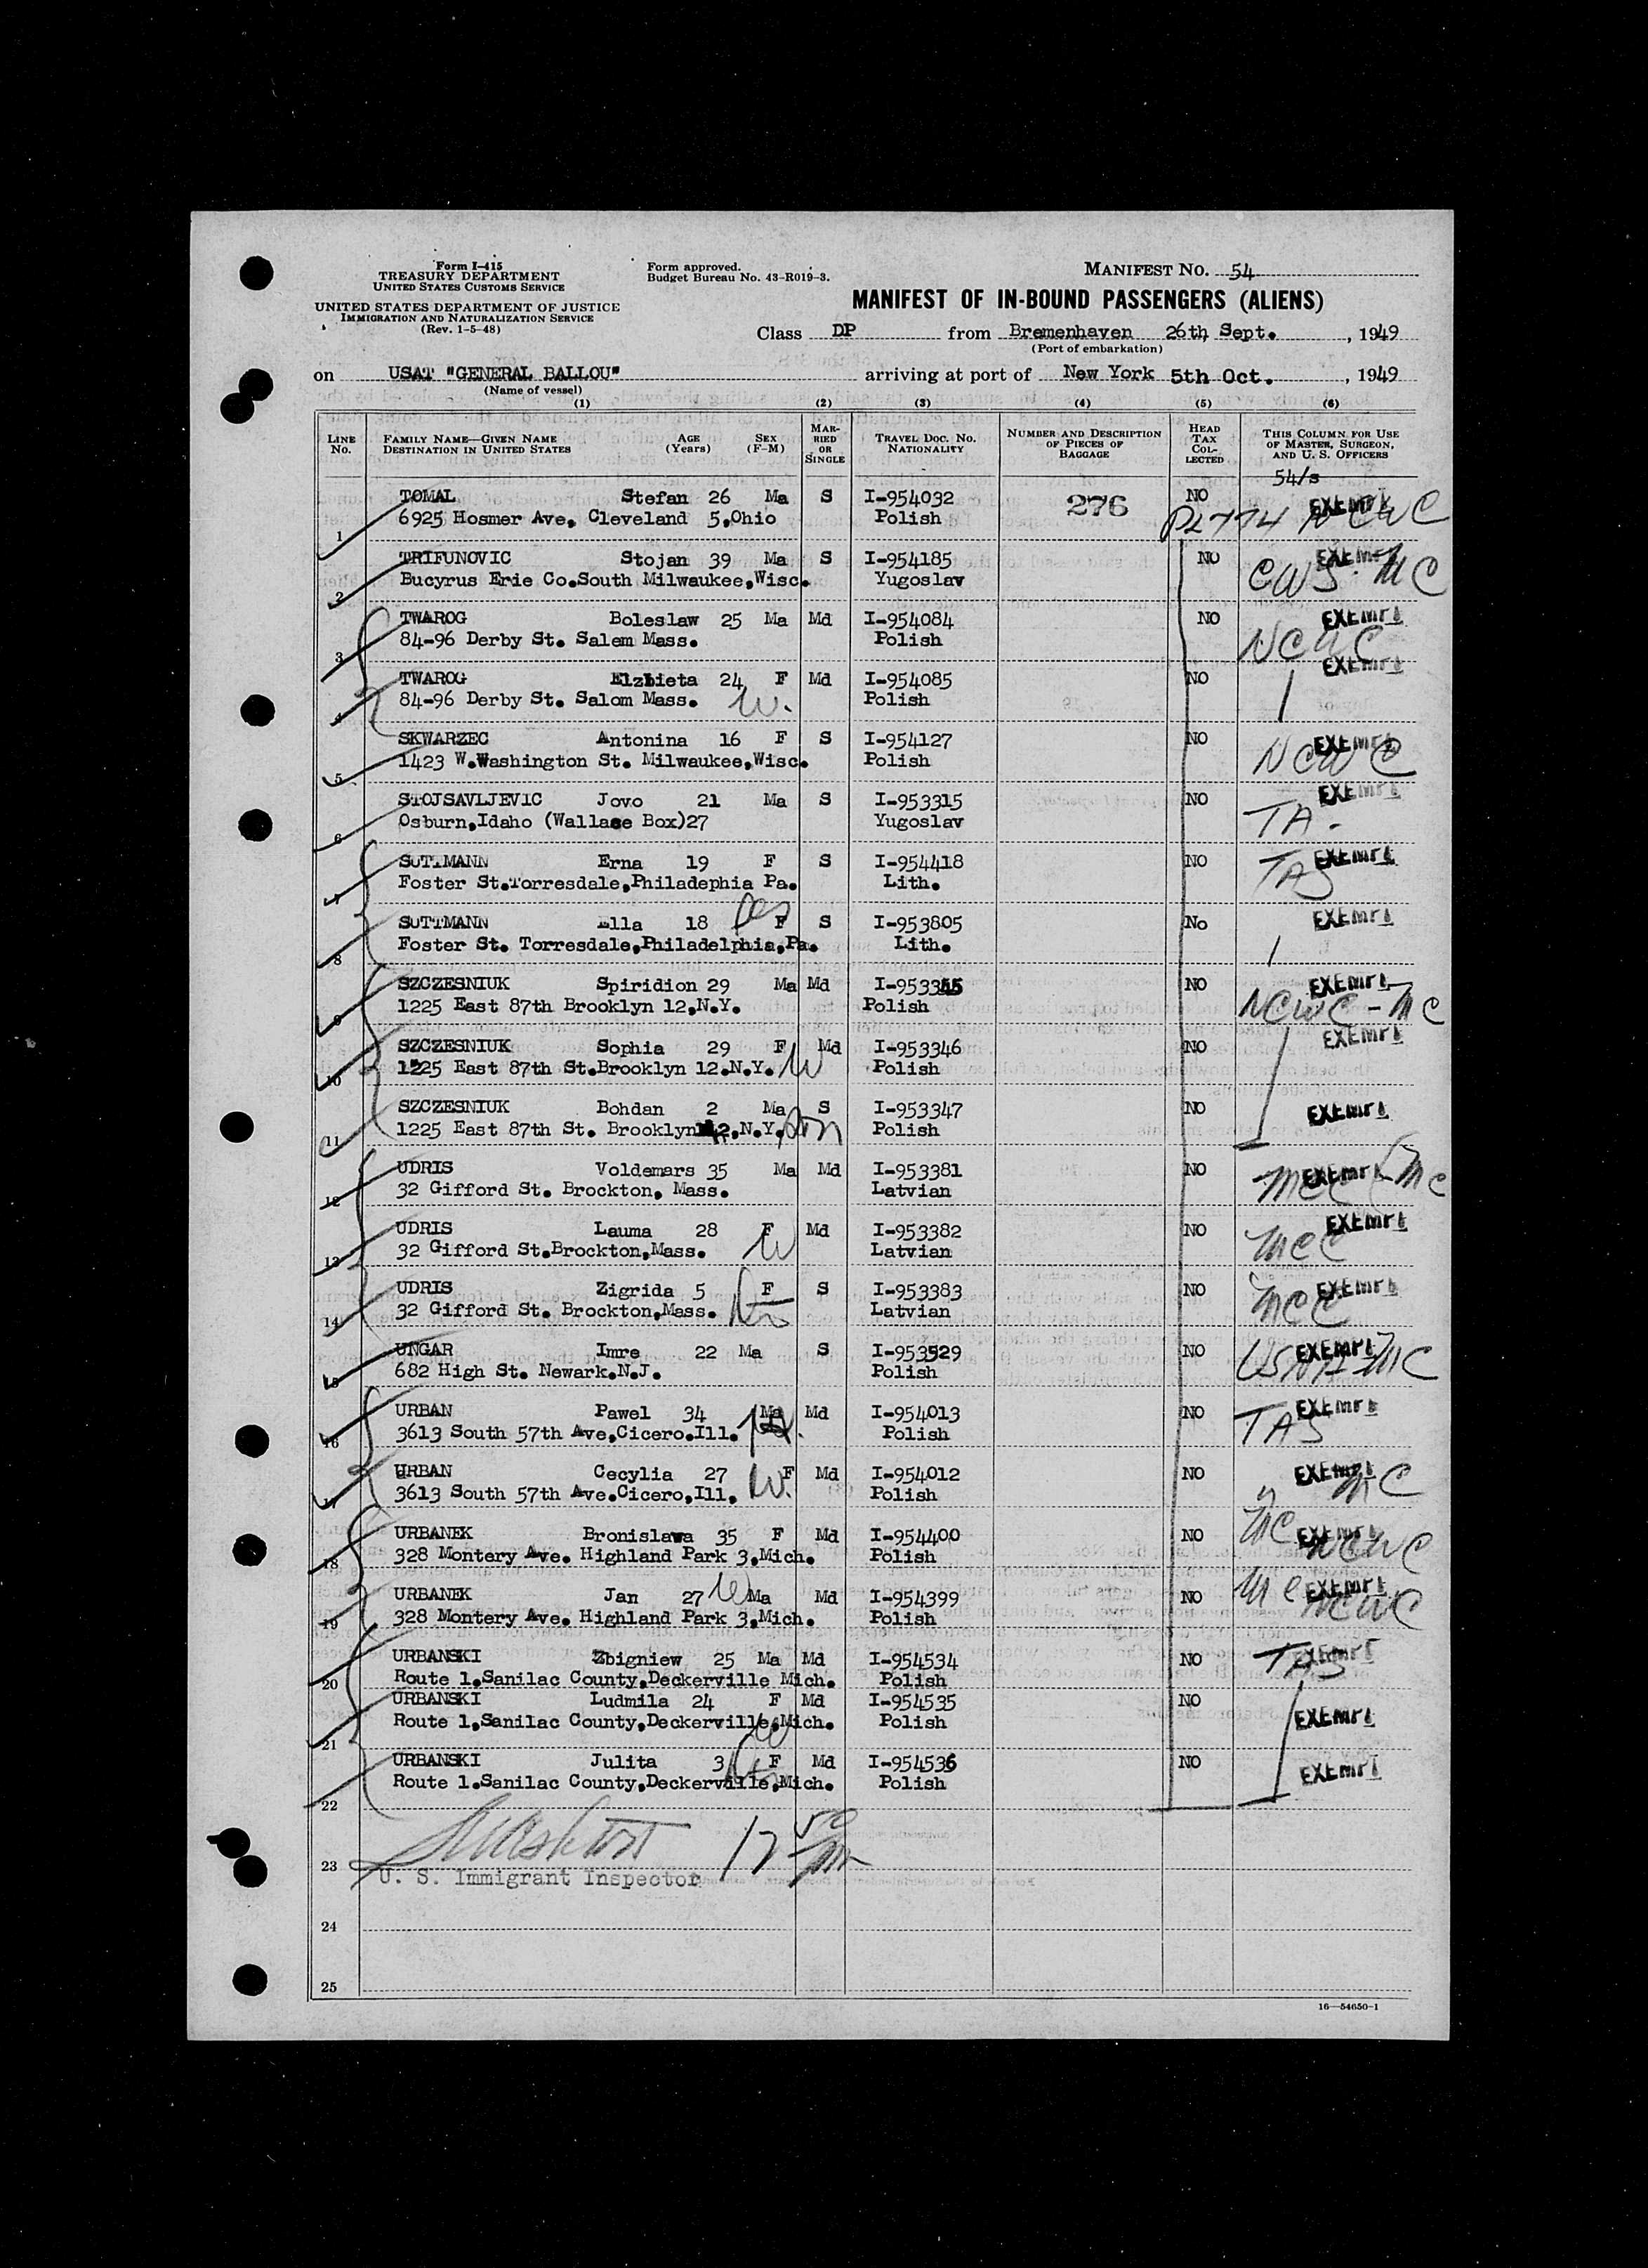 Form I-415
TREASURY DEPARTMENT
UNITED STATES CUSTOMS SERVICE
UNITED STATES DEPARTMENT OF JUSTICE
IMMIGRATION AND NATURALIZATION SERVICE
(Rev. 1-5-48)
Form approved.
Budget Bureau No. 43-R019-3.
MANIFEST NO. 54
MANIFEST OF IN-BOUND PASSENGERS (ALIENS)
Class DP from Bremenhaven 26th Sept., 1949
(Port of embarkation)
on USAT "GENERAL BALLOU" arriving at port of New York 5th Oct., 1949
(Name of vessel)
(1) (2) (3) (4) (5) (6)
LINE No. FAMILY NAME—GIVEN NAME DESTINATION IN UNITED STATES AGE (Years) SEX (F-M) MARRIED OR SINGLE TRAVEL DOC. NO. NATIONALITY NUMBER AND DESCRIPTION OF PIECES OF BAGGAGE HEAD TAX COLLECTED THIS COLUMN FOR USE OF MASTER, SURGEON, AND U. S. OFFICERS
54/s
TOMAL Stefan 26 Ma S I-954032 276 NO EXEMPT
1 6925 Hosmer Ave, Cleveland 5,Ohio Polish NCWC
TRIFUNOVIC Stojan 39 Ma S I-954185 NO EXEMPT
2 Bucyrus Erie Co.South Milwaukee,Wisc. Yugoslav CWS-MC
TWAROG Boleslaw 25 Ma Md I-954084 NO EXEMPT
3 84-96 Derby St. Salem Mass. Polish NCWC
TWAROG Elzbieta 24 F Md I-954085 NO EXEMPT
4 84-96 Derby St. Salom Mass. W. Polish
SKWARZEC Antonina 16 F S I-954127 NO EXEMPT
5 1423 W.Washington St. Milwaukee,Wisc. Polish NCWC
STOJSAVLJEVIC Jovo 21 Ma S I-953315 NO EXEMPT
6 Osburn,Idaho (Wallace Box)27 Yugoslav TA-
SUTTMANN Erna 19 F S I-954418 NO EXEMPT
7 Foster St.Torresdale,Philadephia Pa. Lith. TAS
SUTTMANN Ella 18 F S I-953805 No EXEMPT
8 Foster St. Torresdale,Philadelphia,Pa. Lith.
SZCZESNIUK Spiridion 29 Ma Md I-953345 NO EXEMPT
9 1225 East 87th Brooklyn 12,N.Y. Polish NCWC-MC
SZCZESNIUK Sophia 29 F Md I-953346 NO EXEMPT
10 1225 East 87th St.Brooklyn 12.N.Y. W Polish
SZCZESNIUK Bohdan 2 Ma S I-953347 NO EXEMPT
11 1225 East 87th St. Brooklyn 12,N.Y. Son Polish
UDRIS Voldemars 35 Ma Md I-953381 NO EXEMPT
12 32 Gifford St. Brockton, Mass. Latvian MCC-MC
UDRIS Lauma 28 F Md I-953382 NO EXEMPT
13 32 Gifford St.Brockton,Mass. W Latvian MCC
UDRIS Zigrida 5 F S I-953383 NO EXEMPT
14 32 Gifford St. Brockton,Mass. Latvian MCC
UNGAR Imre 22 Ma S I-953529 NO EXEMPT
15 682 High St. Newark.N.J. Polish USNA-MC
URBAN Pawel 34 Ma Md I-954013 NO EXEMPT
16 3613 South 57th Ave,Cicero.Ill. Polish TAS
URBAN Cecylia 27 F Md I-954012 NO EXEMPT
17 3613 South 57th Ave.Cicero,Ill, W. Polish MC
URBANEK Bronislawa 35 F Md I-954400 NO MC EXEMPT
18 328 Montery Ave. Highland Park 3,Mich. Polish NCWC
URBANEK Jan 27 W Ma Md I-954399 NO MC EXEMPT
19 328 Montery Ave. Highland Park 3,Mich. Polish NCWC
URBANSKI Zbigniew 25 Ma Md I-954534 NO TAS EXEMPT
20 Route 1.Sanilac County,Deckerville Mich. Polish
URBANSKI Ludmila 24 F Md I-954535 NO EXEMPT
21 Route 1,Sanilac County,Deckerville,Mich. W Polish
URBANSKI Julita 3 F Md I-954536 NO EXEMPT
22 Route 1.Sanilac County,Deckerville,Mich. Polish
12 50
23 U. S. Immigrant Inspector
24
25
16—54650-1